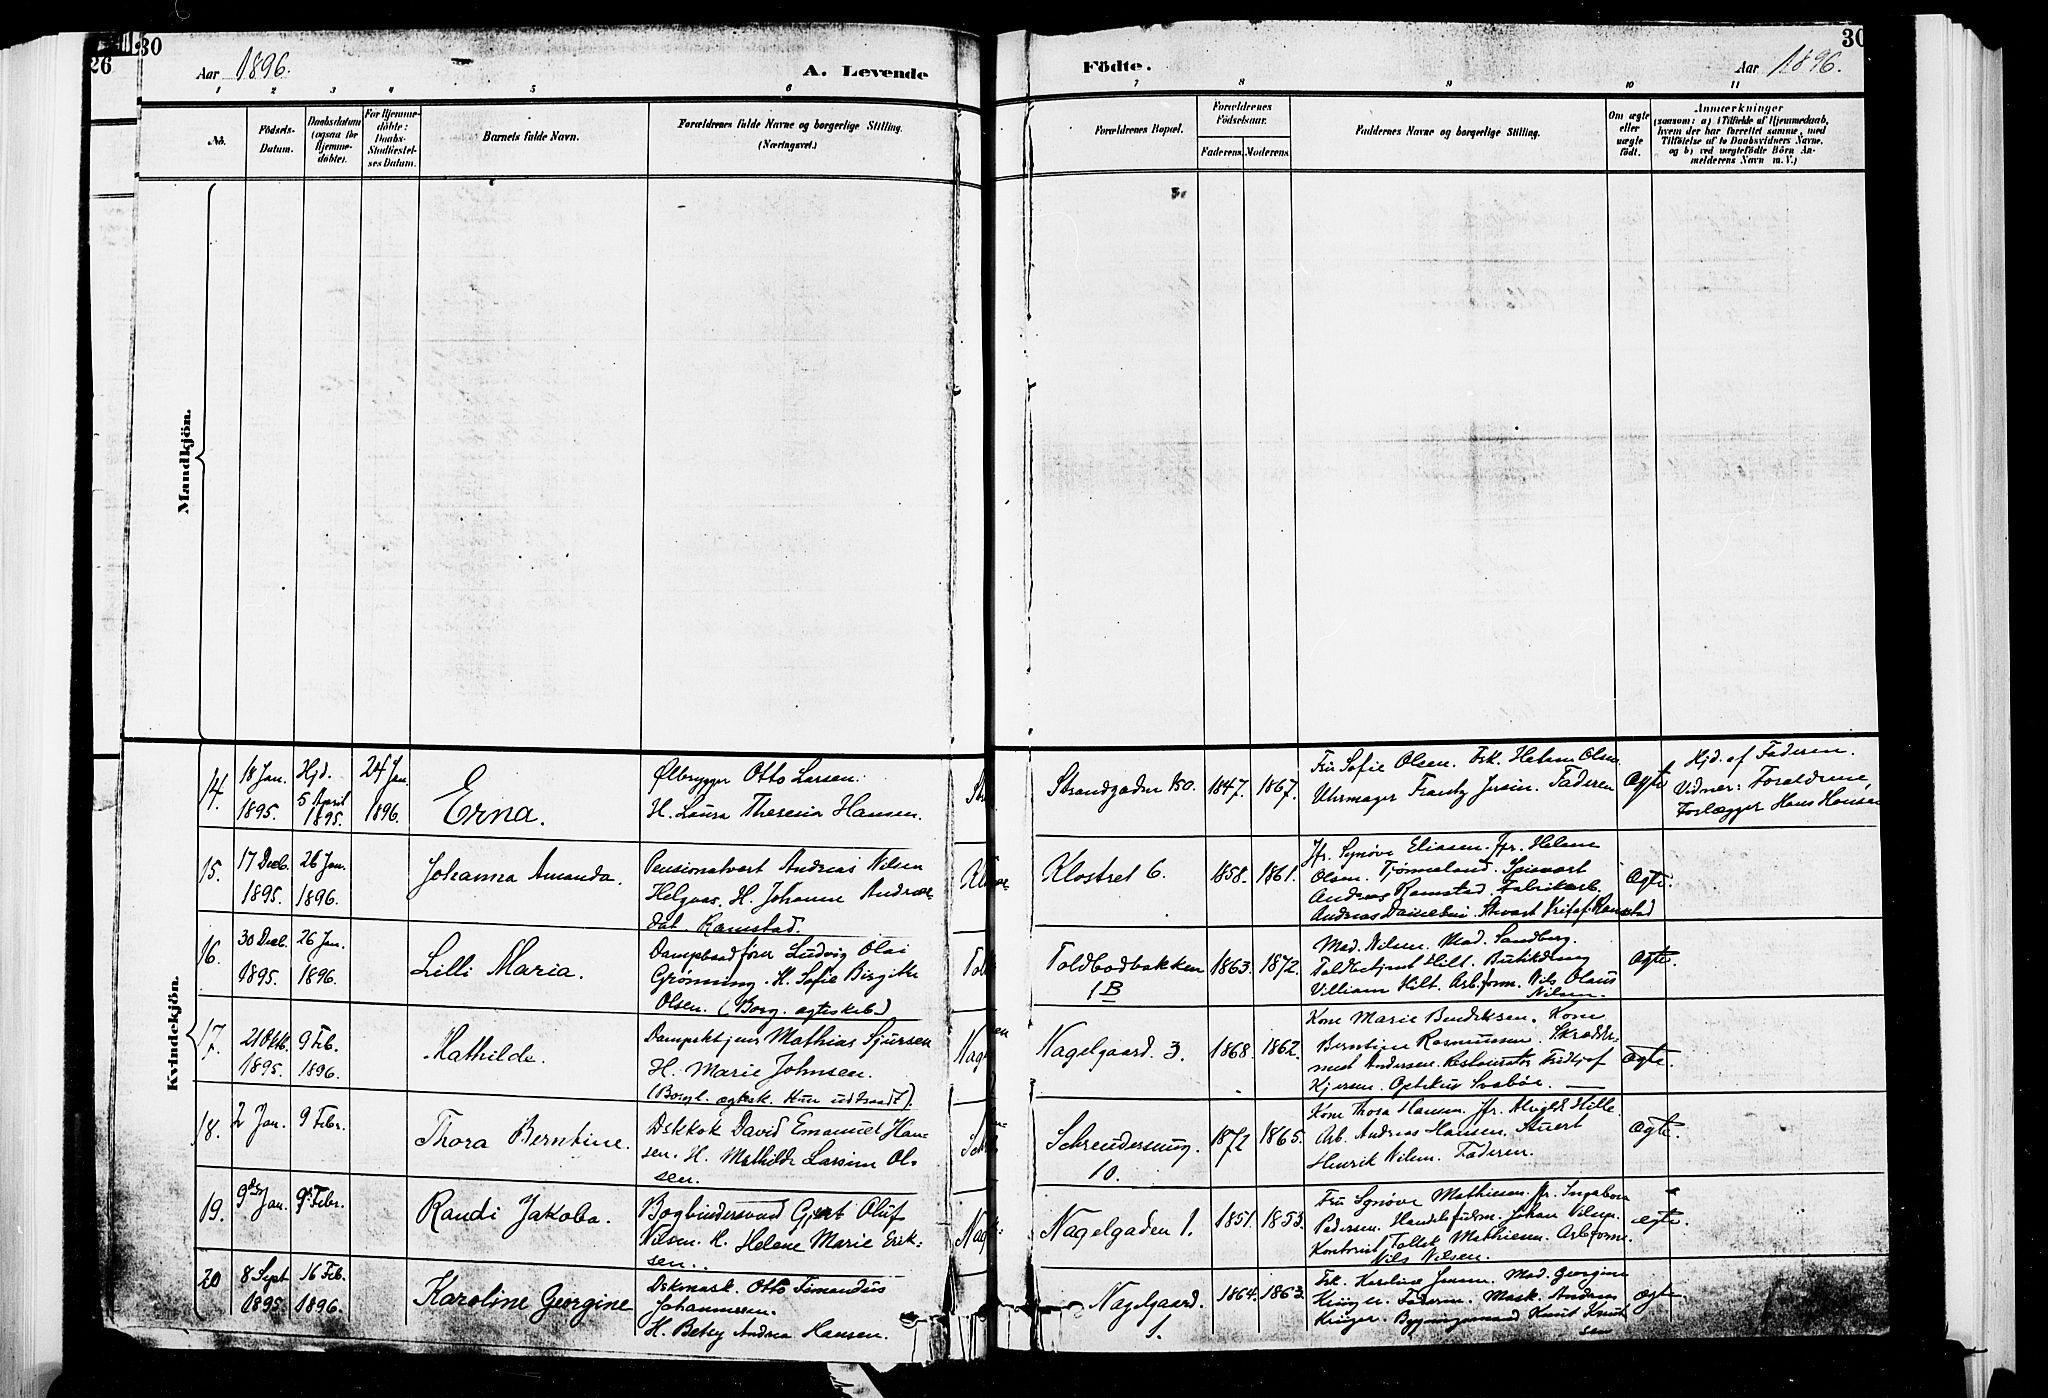 30
26
Aar 1896.
A. Levende
Fødte.
Aar 1896.
30
1 2 3 4 5 6 7 8 9 10 11
No.
Födsels-
Datum.
Daabsdatum
(ogsaa for
Hjemme-
döbte).
For Hjemme-
döbte:
Daabs-
Stadfæstel-
ses Datum.
Barnets fulde Navn.
Forældrenes fulde Navne og borgerlige Stilling.
(Næringsvei.)
Forældrenes Bopæl.
Forældrenes
Födselsaar.
Faderens. Moderens.
Faddernes Navne og borgerlige Stilling.
Om ægte
eller
uægte
födt.
Anmærkninger
(saasom: a) i Tilfælde af Hjemmedaab,
hvem der har forrettet samme, med
Tilföielse af to Daabsvidners Navne,
og b) ved uægtefödte Börn An-
melderens Navn m. V.)
Mandkjön.
Kvindekjön.
14.
18 Jan.
1895.
Hjd.
5 April
1895.
24 Jan.
1896.
Erna.
Ølbrygger Otto Larsen.
H. Laura Theresia Hansen.
Strandgaden 150.
1847. 1867.
Fru Sofie Olsen. Frk. Helene Olsen
Uhrmager Frantz Faderen
Ægte
Hjd. af Faderen.
Vidner: Forældrene,
Forlægger Hans Hansen
15.
17 Decb.
1895.
26 Jan.
1896.
Johanna Amanda.
Pensionatvært Andreas Nilsen
Helgaas. H. Johanne Andreas-
dat. Ramstad.
Klostret 6.
1858. 1861.
Jfr. Synøve Eliasen. Jfr. Helene
Olsen. Tjønneland. Spisevært
Andreas Ramstad Fabrikarb.
Andreas Ramstad
Ægte.
16.
30 Decb.
1895.
26 Jan.
1896.
Lilli Maria.
Dampbaadfører Ludvig Olai
Grønning. H. Sofie Birgitte
Olsen. (Borg. ægteskab)
Toldbodbakken
1B
1863. 1872.
Mad. Nilsen. Mad. Sandberg.
Toldbetjent Hilt.
Villiam Hilt. Arb.form. Nils Olaus
Nilsen.
Ægte.
17.
21 Oktb.
1895.
9 Feb.
1896.
Mathilde.
Mathias Sjursen
H. Marie Johnsen.
(Borgl. ægtesk. Hun udtraadt).
Nagelgaard. 3.
1868. 1862.
Kone Marie Bendiksen. Kone
Berntine Rasmussen Skrædder-
mest Andersen. Restauratør Fridtjof
Hjersen. Optikus Svabøe.
Ægte.
18.
2 Jan.
9 Febr.
Thora Berntine.
Dskkok David Emanuel Han-
sen. H. Mathilde Larsine Ol-
sen.
10.
1872 1865.
Kone Thora Hansen. Jfr. Alvilde Hille
Arb. Andreas Hansen. Stuert
Henrik Nilsen. Faderen.
Ægte.
19.
9de Jan.
9. Febr.
Randi Jakoba.
Bogbindersvend Gjert Oluf
Nilsen. H. Helene Marie Erik-
sen.
Nagelgaden 1.
1851. 1853.
Fru Synøve Mathiesen. Jfr. Ingeborg
Pedersen. Handelsfuldm. Johan Nilsen.
Kontorist Mathiesen. Arb.form.
Nils Nilsen.
Ægte.
20
8 Sept
1895.
16 Feb.
1896.
Karoline Georgine
Dskmask. Otto Timandus
Johannessen.
H. Betsy Andrea Hansen.
Nagelgaard.
1.
1864. 1863.
Frk. Karoline Jensen. Mad. Georgine
Krüger. Faderen. Mask. Andreas
Krüger. Bygningssnand Knut Knut
sen
Ægte